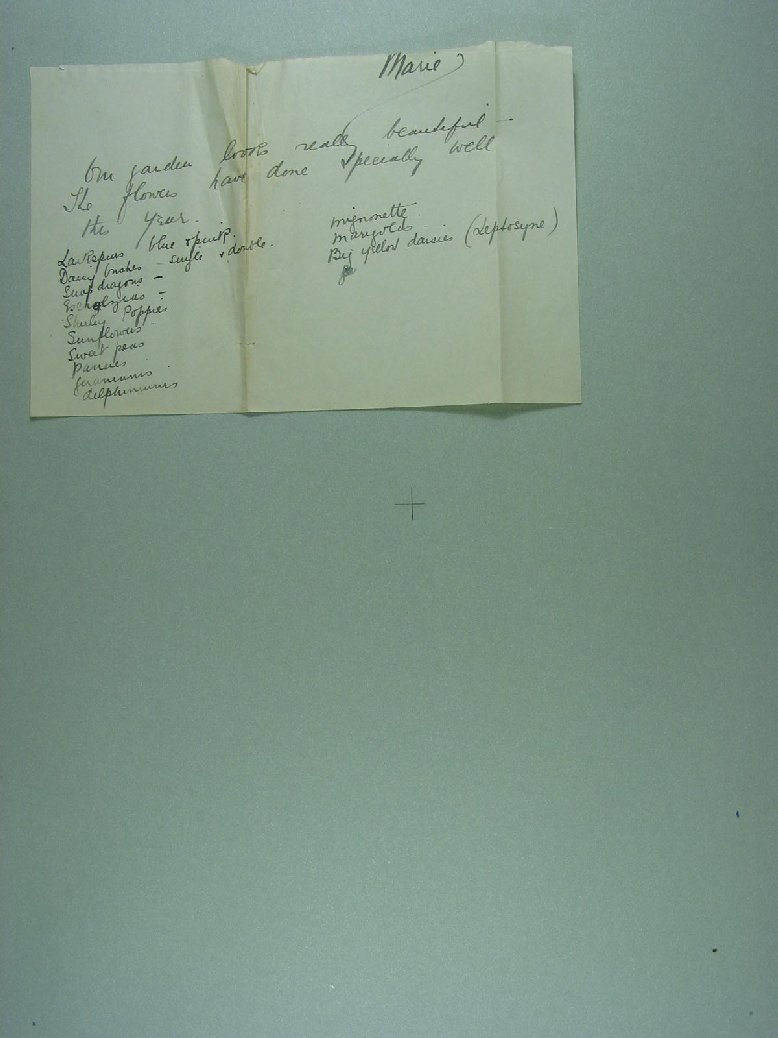 Marie
Our garden looks really beautiful —
The flowers have done specially well
this year.
Larkspurs blue & pink.
Daisy bushes — single & double.
Snap dragons —
Escholzias —
Shirley Poppies
Sunflowers
Sweet peas
Pansies
geraniums
delphiniums
mignonette
marigolds
Big yellow daisies (Leptosyne)